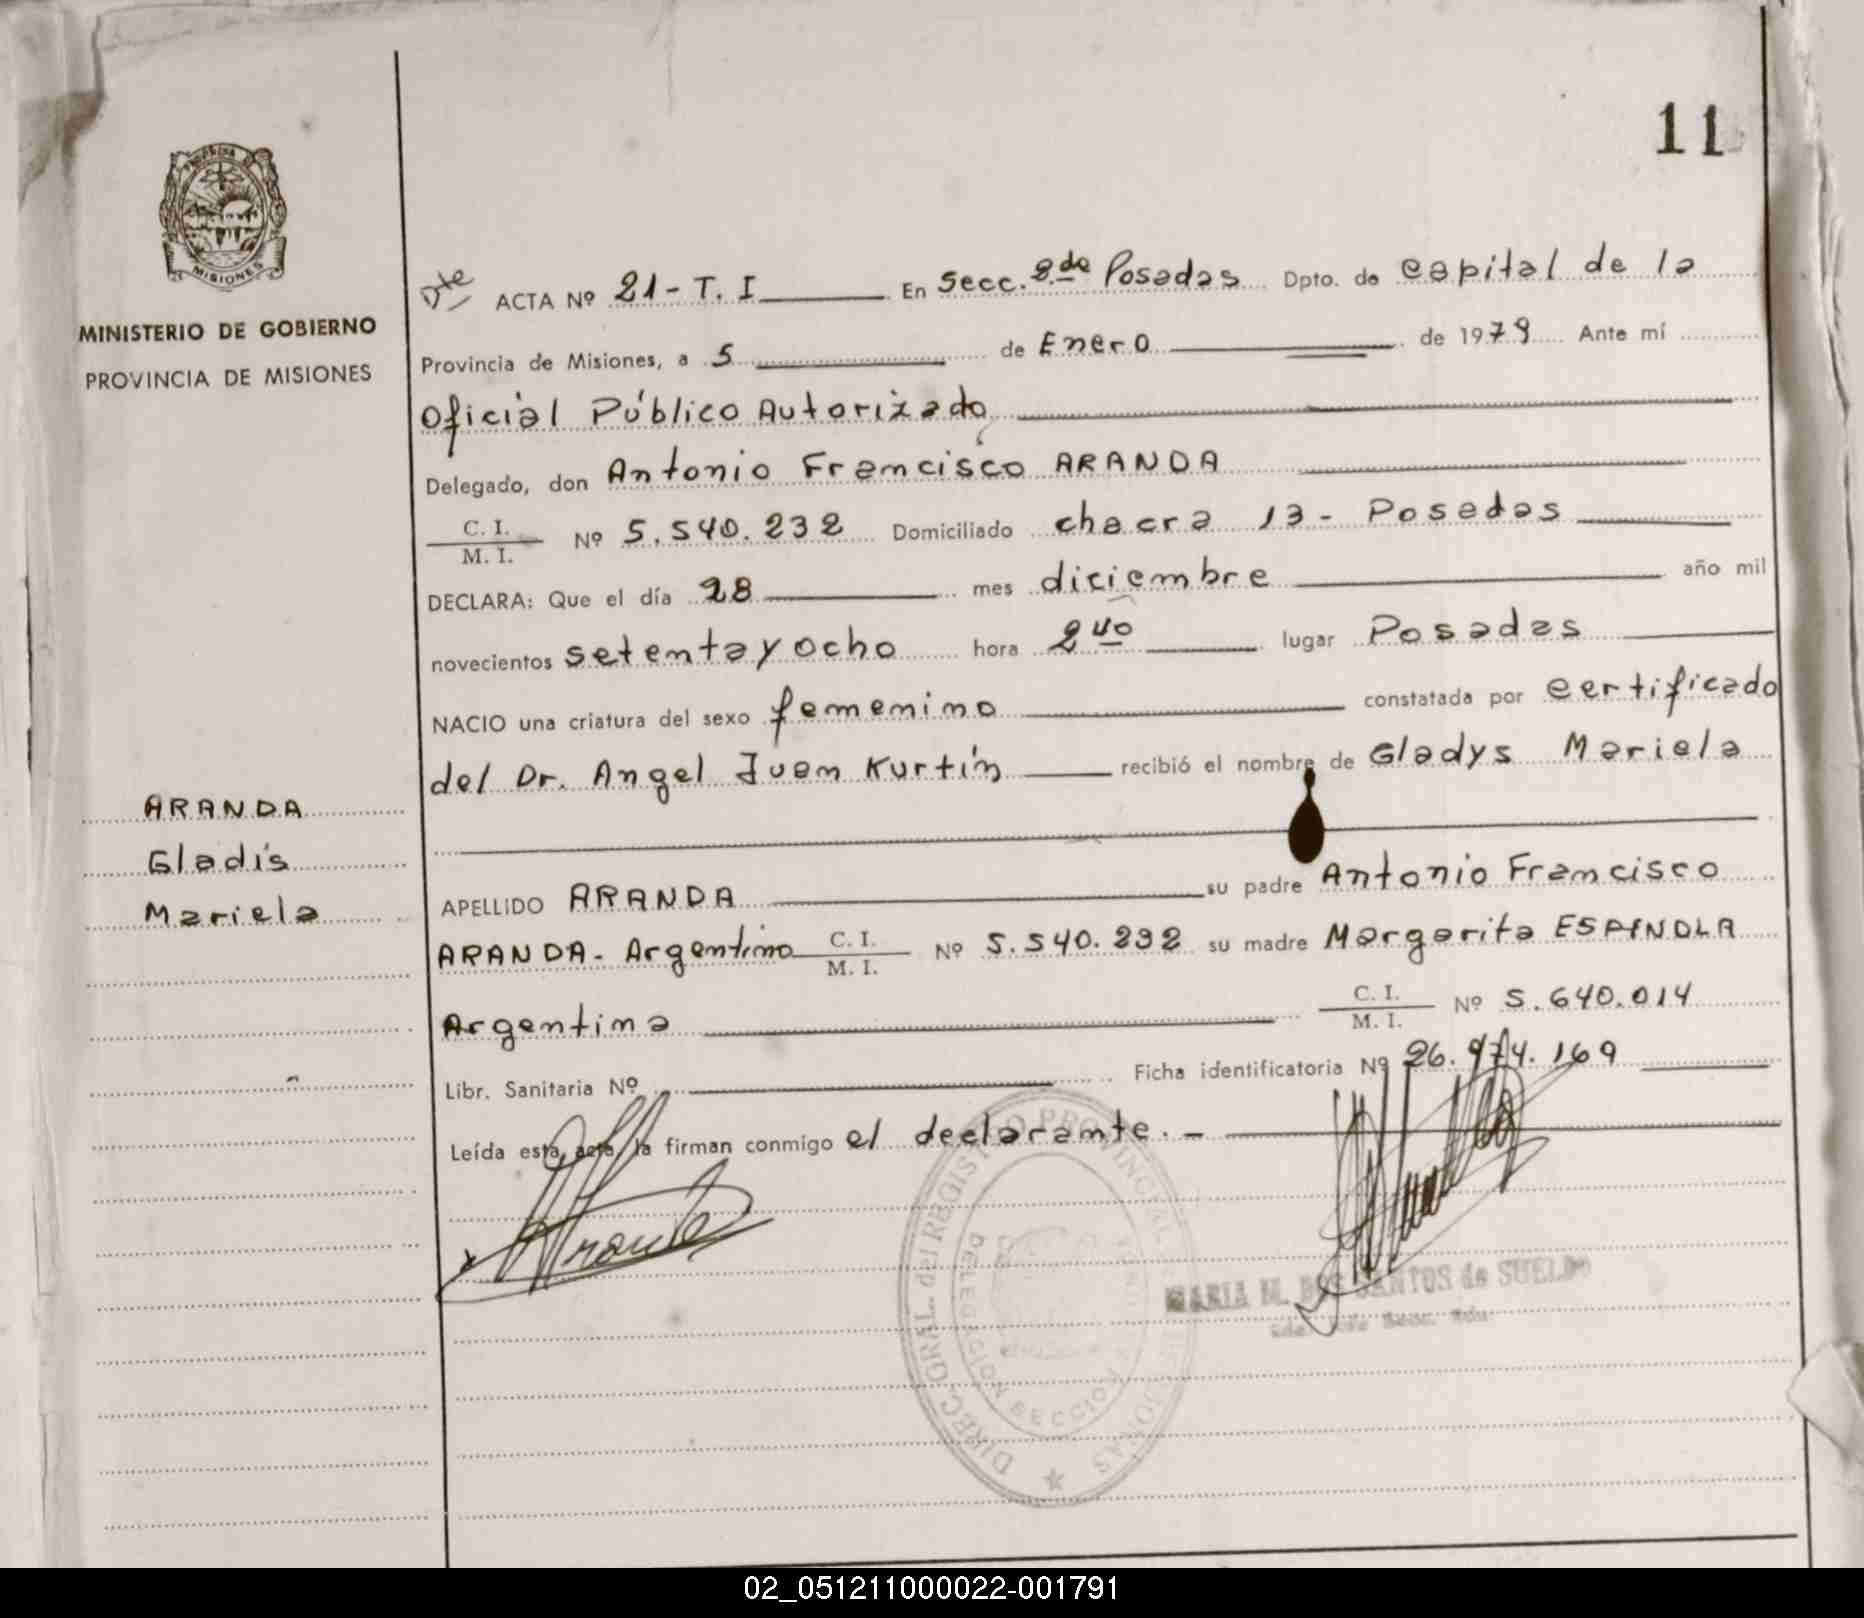 11
PROVINCIA DE
MISIONES
MINISTERIO DE GOBIERNO
PROVINCIA DE MISIONES
ARANDA
Gladis
Mariela
Dte ACTA Nº 21-T. I En Secc. 2da Posadas Dpto. de capital de la
Provincia de Misiones, a 5 de Enero de 1979 Ante mí
Oficial Público Autorizado
Delegado, don Antonio Francisco ARANDA
C. I. / M. I. Nº 5.540.232 Domiciliado chacra 13 - Posadas
DECLARA: Que el día 28 mes diciembre año mil
novecientos setenta y ocho hora 2 40 lugar Posadas
NACIO una criatura del sexo femenino constatada por certificado
del Dr. Angel Juan Kurtin recibió el nombre de Gladys Mariela
APELLIDO ARANDA su padre Antonio Francisco
ARANDA - Argentino C. I. / M. I. Nº 5.540.232 su madre Margarita ESPINDLA
Argentina C. I. / M. I. Nº 5.640.014
Libr. Sanitaria Nº Ficha identificatoria Nº 26.974.169
Leída esta acta, la firman conmigo el declarante. -
Aranda
DIREC. GRAL. del REGISTRO PROVINCIAL DE LAS PERSONAS
DELEGACION SECCION
MARIA M. DOS SANTOS de SUELDO
02_051211000022-001791